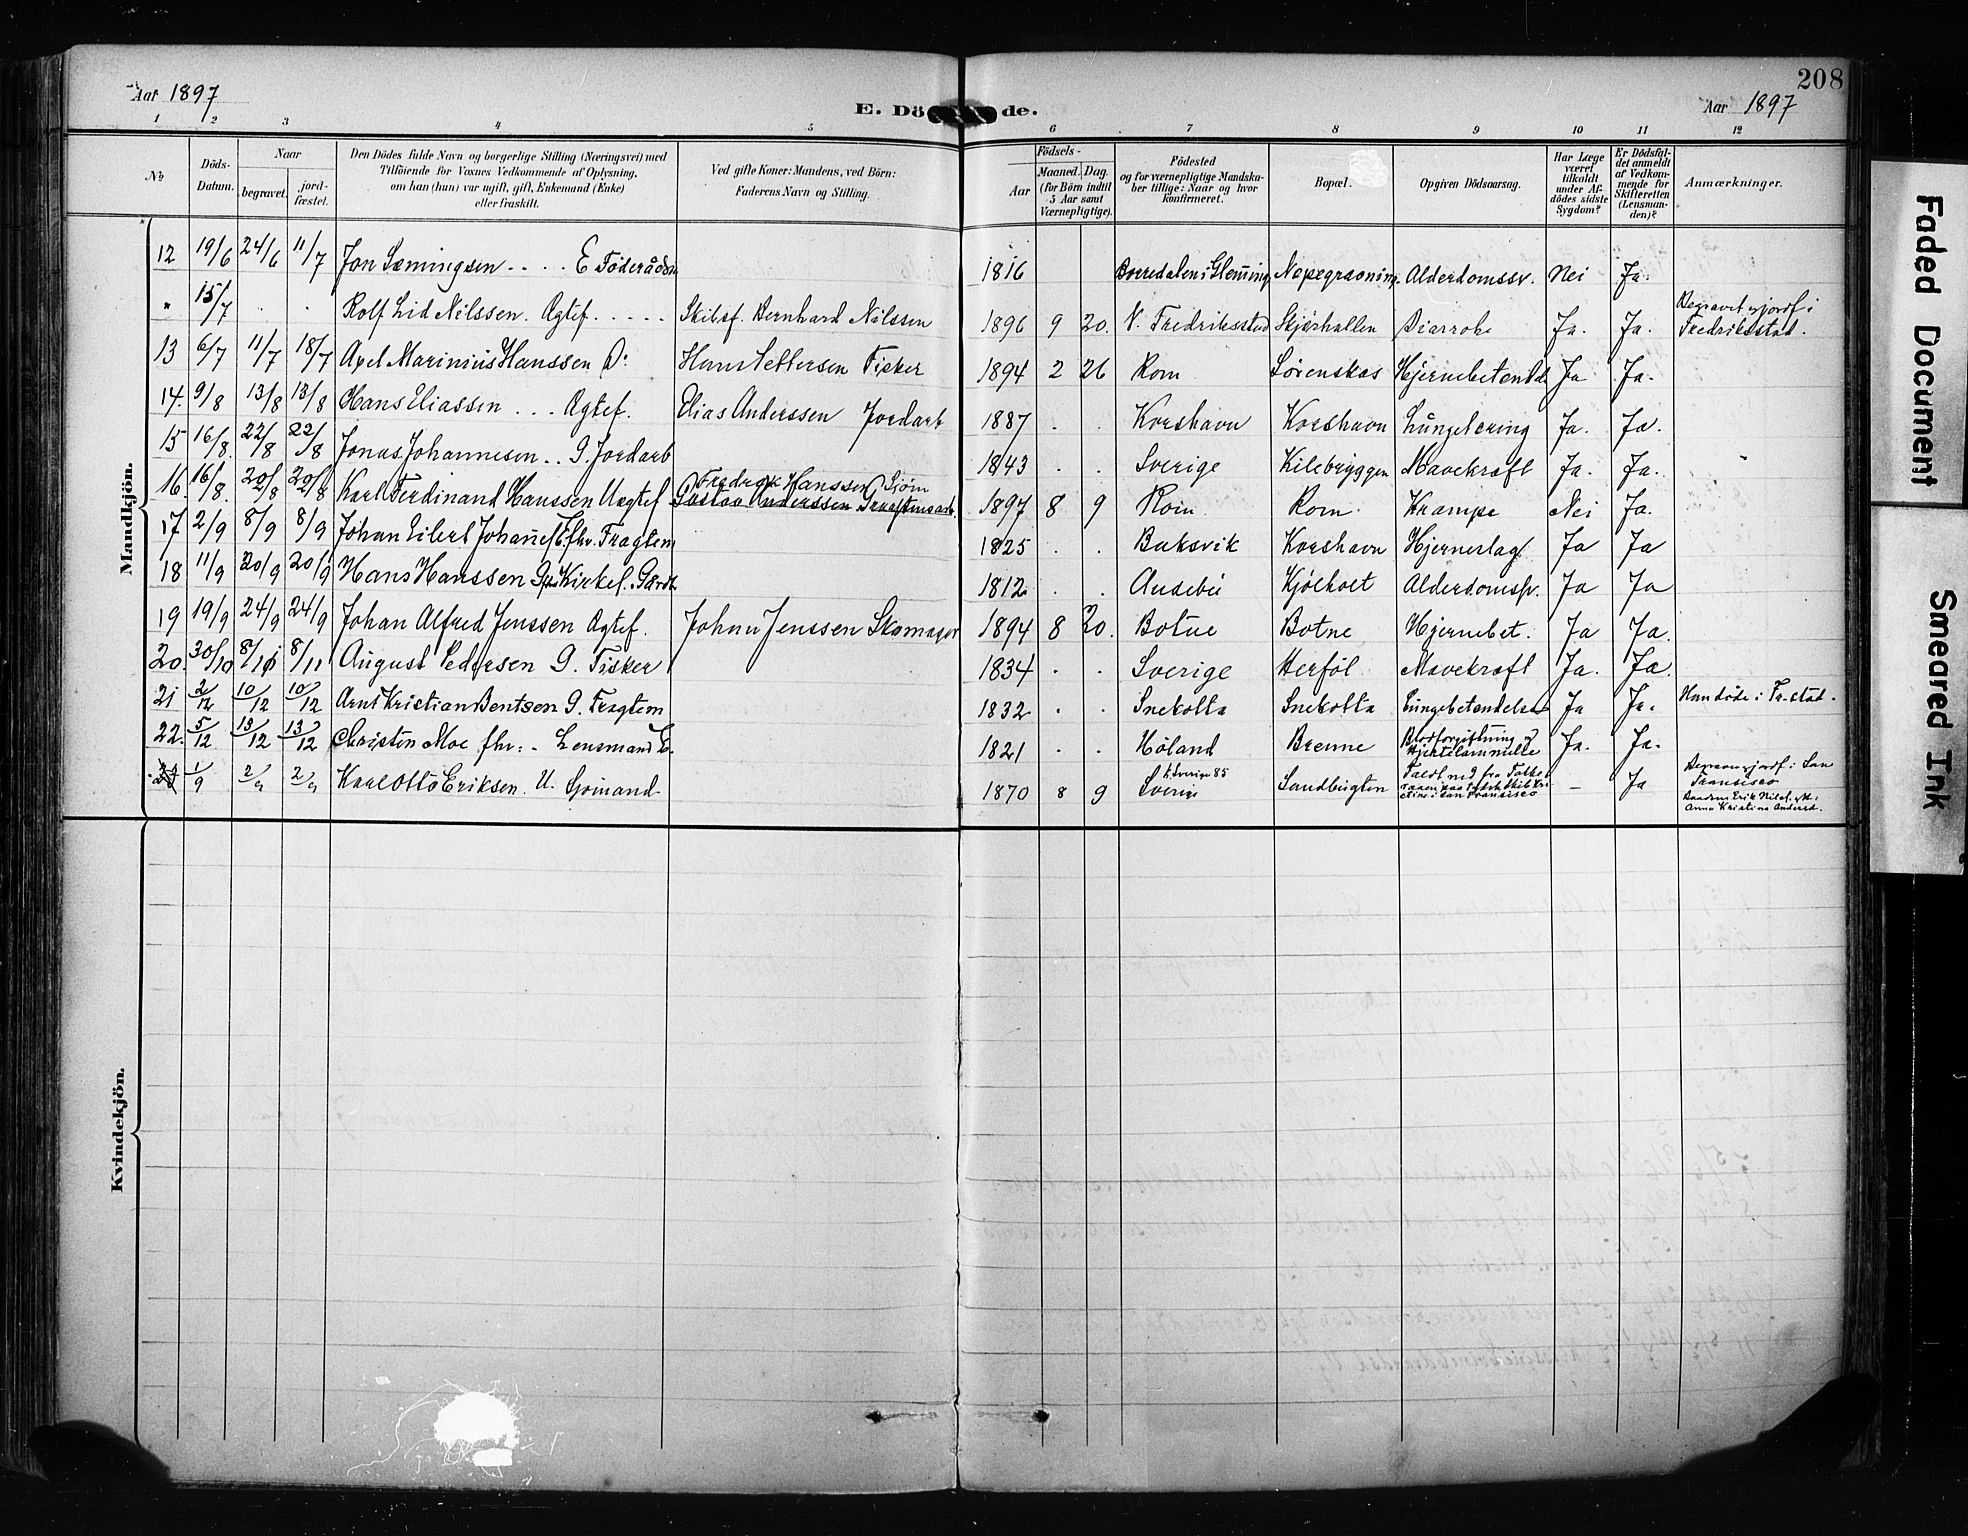 208
Aar 1897
E. Dö de.
Aar 1897
1 2 3 4 5 6 7 8 9 10 11 12
№
Döds-Datum.
Naar
begravet.
jord-fæstet.
Den Dödes fulde Navn og borgerlige Stilling (Næringsvei) med
Tilföiende for Voxnes Vedkommende af Oplysning,
om han (hun) var ugift, gift, Enkemand (Enke)
eller fraskilt.
Ved gifte Koner: Mandens, ved Börn:
Faderens Navn og Stilling.
Födsels-
Aar
Maaned. Dag.
(for Börn indtil
5 Aar samt
Værnepligtige).
Födested
og for værnepligtige Mandska-
ber tillige: Naar og hvor
konfirmeret.
Bopæl.
Opgiven Dödsaarsag.
Har Læge
været
tilkaldt
under Af-
dödes sidste
Sygdom?
Er Dödsfal-
det anmeldt
af Vedkom-
mende for
Skifteretten
(Lensman-
den)?
Anmærkninger.
Mandkjön.
12 19/6 24/6 11/7 Jon Sæmingsen .... E Föderådsm 1816 Borredalen i Glemming Alderdomssv. Nei Ja.
" 15/7 . . Rolf Lid Nilssen. Ægtef. ..... Skibsf. Bernhard Nilssen 1896 9 20. V. Fredriksstad Skjærhallen Diarrohe Ja. Ja. Begravet og jordf i Fredriksstad.
13 6/7 11/7 18/7 Axel Marinius Hanssen D: Hans Pettersen Fisker 1894 2 26 Rom Sörenskas Hjernebetendelse Ja Ja.
14. 9/8 13/8 13/8 Hans Eliassen ... Ægtef. Elias Anderssen Jordarb 1887 . . Korshavn Korshavn Lungetæring Ja. Ja.
15 16/8. 22/8 22/8 Jonas Johannesen .. G. Jordarb 1843 . . Sverige Kilebryggen Mavekræft Ja. Ja.
16. 16/8. 20/8 20/8 Karl Ferdinand Hanssen Uægtef Fredrik Hanssen Sjöm
Gustav Anderssen 1897 8 9 Rom Rom Krampe Nei Ja.
17 2/9 8/9 8/9 Johan Eilert Johannes E. fhv. Fragtem 1825 . . Buksvik Korshavn Hjerneslag Ja Ja
18 11/9 20/9 20/9 Hans Hanssen G. fhv Kirkes. Gærdb 1812 . . Ausebü Kjölholt Alderdomssv. Ja Ja
19 19/9 24/9 24/9 Johan Alfred Jenssen Ægtef. Johan Jenssen Skomager 1894 8 20. Botne Botne Hjernebet. Ja Ja.
20. 30/10 8/11 8/11 August Pedersen G. Fisker 1834 . . Sverige Herföl Mavekræft Ja. Ja.
21 2/12 10/12 10/12 Arnt Kristian Bentsen G. Fragtem 1832 . . Snekotta Snekotta Lungebetendelse Ja Ja. Han döde i Fr.stad.
22. 5/12 13/12 13/12 Christen Moe fhv: - Lensmand E. 1821 . . Höland Brenne Blodforgiftning og Hjertelammelse Ja. Ja.
1/9 2/9 2/9 Karl Otto Eriksen. U. Sjömand 1870 8 9 K. Sverige 85 Sverige Sandbugten Faldt ned fra Fokke raaen paa norsk Skib Kri stine i San Fransisco — Ja Begrav og jordf i San Fransisco
Anna Kristina
Kvindekjön.
Faded Document
Smeared Ink